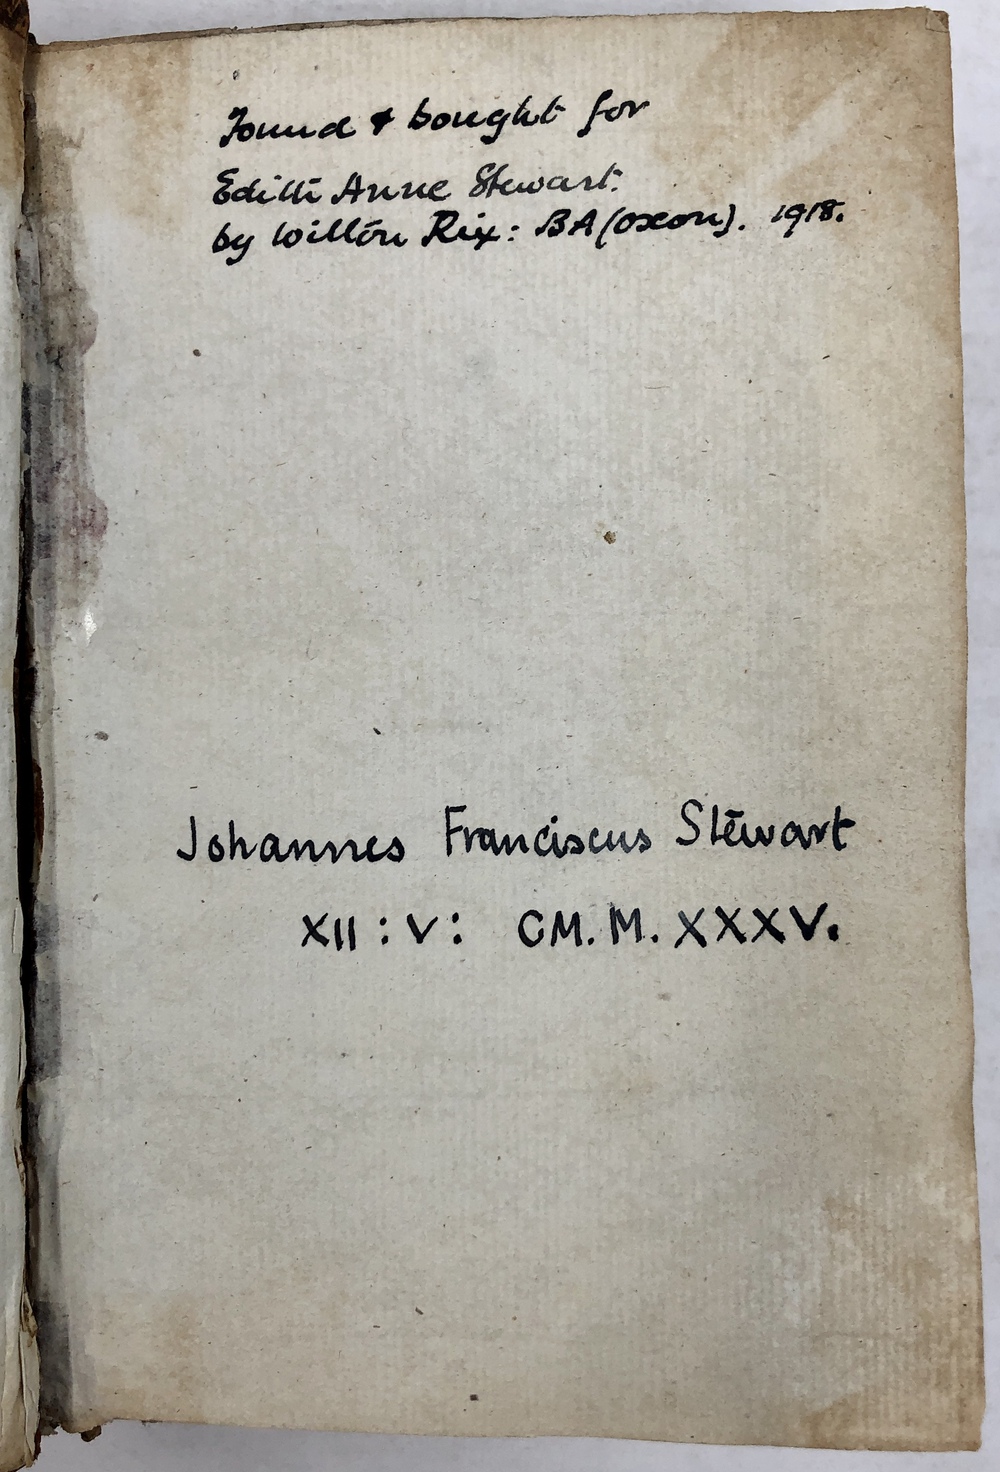 Found & bought for
Edith Anne Stewart.
by Wilton Rix: BA (Oxon). 1918.
Johannes Franciscus Stewart
XII : V : CM. M. XXXV.